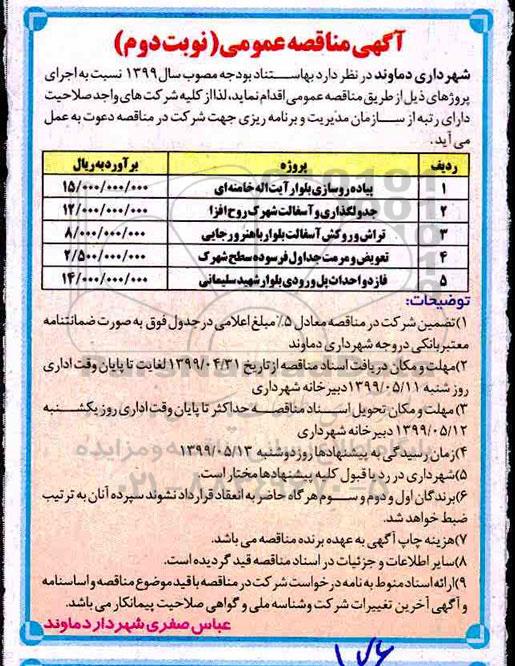 آگهی مناقصه عمومی (نوبت دوم)
شهرداری دماوند در نظر دارد به استناد بودجه مصوب سال ۱۳۹۹ نسبت به اجرای
پروژهای ذیل از طریق مناقصه عمومی اقدام نماید، لذا از کلیه شرکت های واجد صلاحیت
دارای رتبه از سازمان مدیریت و برنامه ریزی جهت شرکت در مناقصه دعوت به عمل
می آید.
ردیف پروژه برآورد به ریال
۱ پیاده روسازی بلوار آیت اله خامنه ای ۱۵/۰۰۰/۰۰۰/۰۰۰
۲ جدولگذاری و آسفالت شهرک روح افزا ۱۲/۰۰۰/۰۰۰/۰۰۰
۳ تراش و روکش آسفالت بلوار باهنر و رجایی ۸/۰۰۰/۰۰۰/۰۰۰
۴ تعویض و مرمت جداول فرسوده سطح شهرک ۲/۵۰۰/۰۰۰/۰۰۰
۵ فاز دو احداث پل ورودی بلوار شهید سلیمانی ۱۴/۰۰۰/۰۰۰/۰۰۰
توضیحات:
۱)تضمین شرکت در مناقصه معادل ۵٪ مبلغ اعلامی در جدول فوق به صورت ضمانتنامه
معتبر بانکی در وجه شهرداری دماوند
۲)مهلت و مکان دریافت اسناد مناقصه از تاریخ ۱۳۹۹/۰۴/۳۱ لغایت تا پایان وقت اداری
روز شنبه ۱۳۹۹/۰۵/۱۱ دبیرخانه شهرداری
۳) مهلت و مکان تحویل اسناد مناقصه حداکثر تا پایان وقت اداری روز یکشنبه
۱۳۹۹/۰۵/۱۲ دبیر خانه شهرداری
۴)زمان رسیدگی به پیشنهادها روز دوشنبه ۱۳۹۹/۰۵/۱۳
۵)شهرداری در رد یا قبول کلیه پیشنهادها مختار است.
۶)برندگان اول و دوم و سوم هرگاه حاضر به انعقاد قرارداد نشوند سپرده آنان به ترتیب
ضبط خواهد شد.
۷)هزینه چاپ آگهی به عهده برنده مناقصه می باشد.
۸)سایر اطلاعات و جزئیات در اسناد مناقصه قید گردیده است.
۹)ارائه اسناد منوط به نامه درخواست شرکت در مناقصه با قید موضوع مناقصه و اساسنامه
و آگهی آخرین تغییرات شرکت وشناسه ملی و گواهی صلاحیت پیمانکار می باشد.
عباس صفری شهردار دماوند